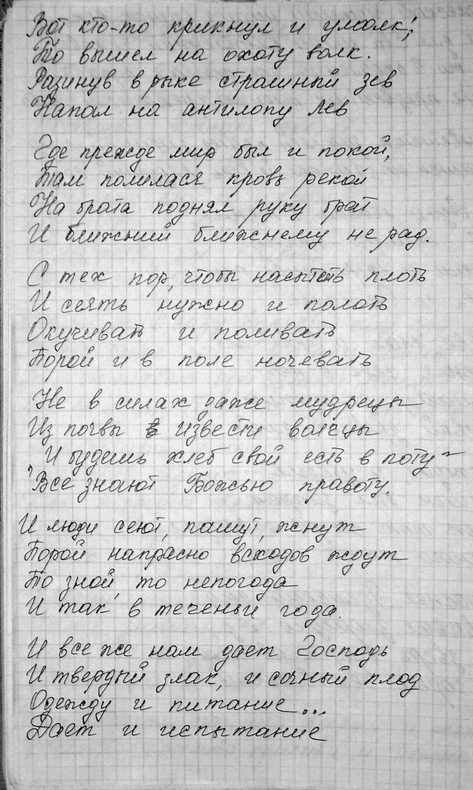 Вот кто-то крикнул и умолк,
То вышел на охоту волк.
Разинув в рыке страшный зев
Напал на антилопу лев
Где прежде мир был и покой,
Там полилася кровь рекой
На брата поднял руку брат
И ближний ближнему не рад.
С тех пор, чтобы насытить плоть
И сеять нужно и полоть
Окучивать и поливать
Порой и в поле ночевать
Не в силах даже мудрецы
Из почвы извести волчцы
"И будешь хлеб свой есть в поту" –
Все знают Божью правоту.
И люди сеют, пашут, жнут
Порой напрасно всходов ждут
То зной, то непогода
И так в теченьи года.
И все же нам дает Господь
И твердый злак, и сочный плод
Одежду и питание...
Дает и испытание